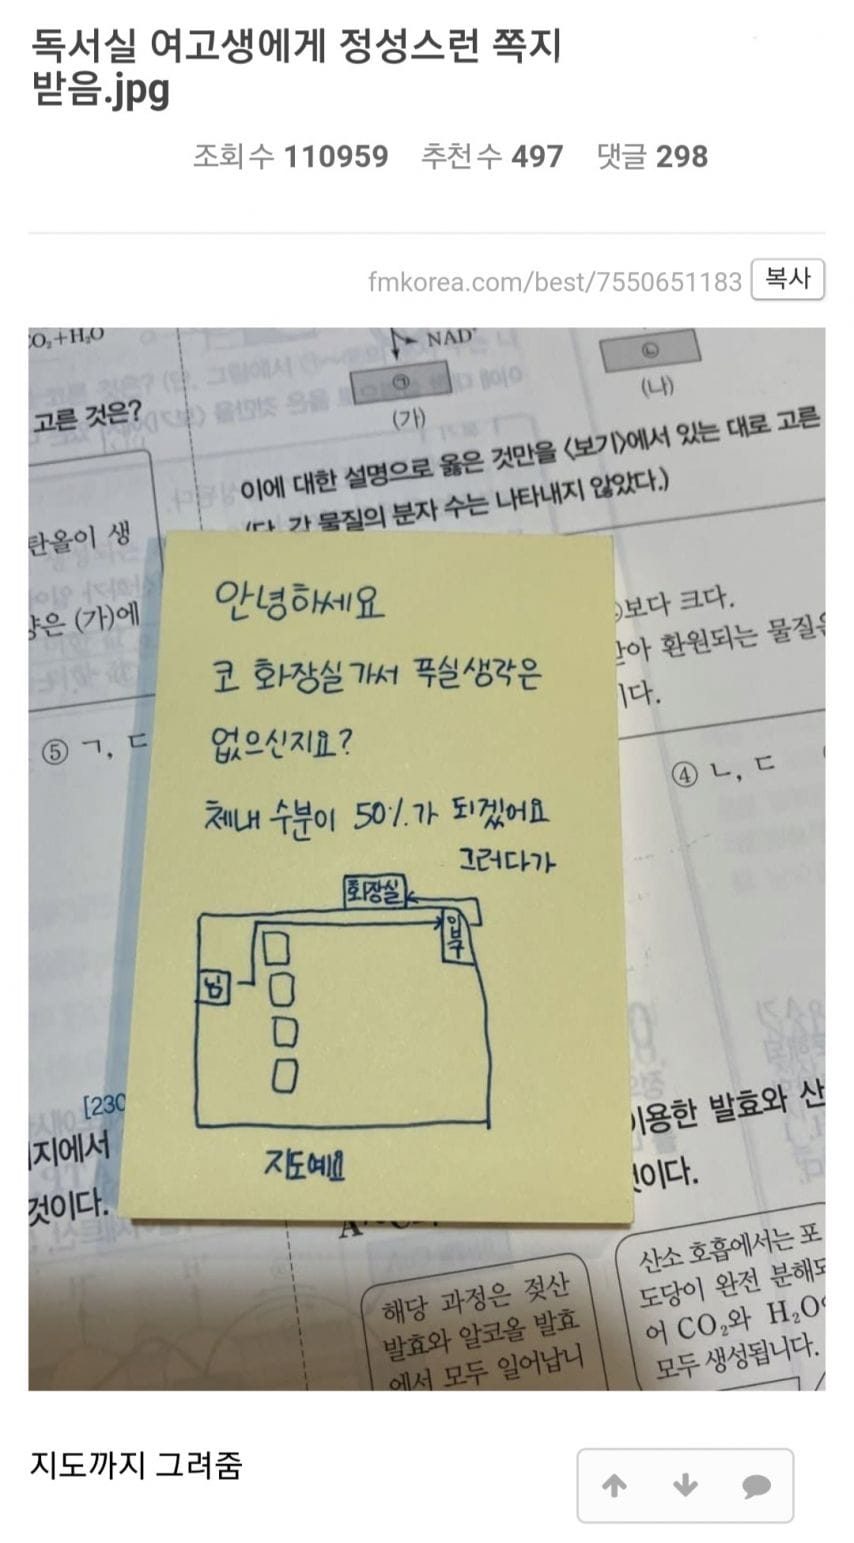 독서실 여고생에게 정성스런 쪽지
받음.jpg
조회수 110959 추천수 497 댓글 298
fmkorea.com/best/7550651183 복사
O₂+H₂O
NAD⁺
㉠
㉡
(가)
(나)
고른 것은?
이에 대한 설명으로 옳은 것만을 <보기>에서 있는 대로 고른
(단, 각 물질의 분자 수는 나타내지 않았다.)
탄올이 생
(가)에
보다 크다.
환원되는 물질은
⑤ ㄱ, ㄷ
④ ㄴ, ㄷ
안녕하세요
코 화장실가서 푸실생각은
없으신지요?
체내 수분이 50%가 되겠어요
그러다가
화장실
입구
님
지도예요
[230
지에서
것이다.
이용한 발효와 산
것이다.
해당 과정은 젖산
발효와 알코올 발효
에서 모두 일어납니
산소 호흡에서는 포
도당이 완전 분해되
어 CO₂와 H₂O
모두 생성됩니다.
지도까지 그려줌